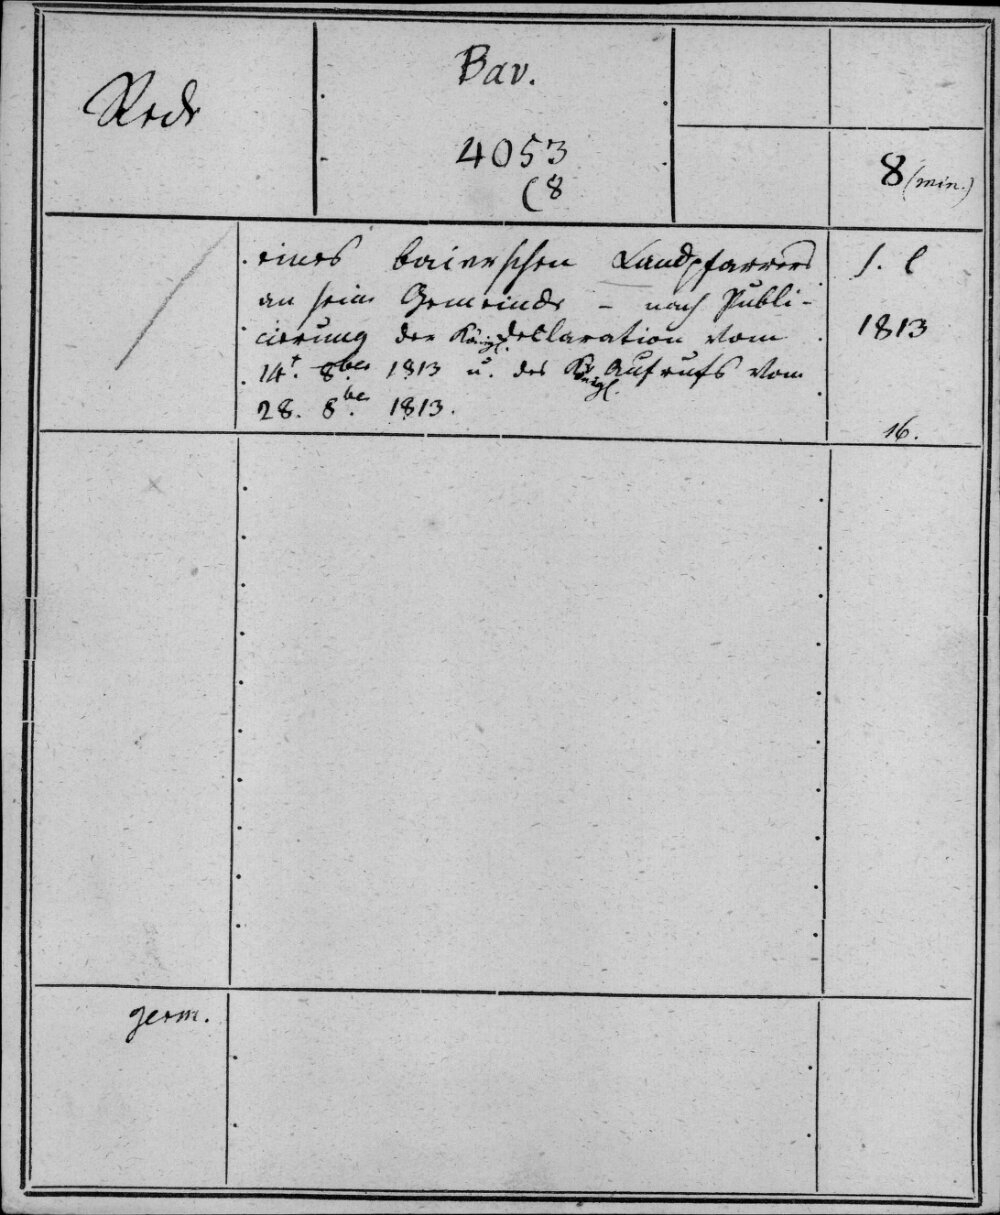 Rede
Bav.
4053
(8
8 (min.)
eines baierschen Landpfarrers
an seine Gemeinde – nach Publi-
cierung der Königl. declaration vom
14t. 8ber 1813 u. des Königl. Aufrufs vom
28. 8ber 1813.
s. l
1813
16.
germ.